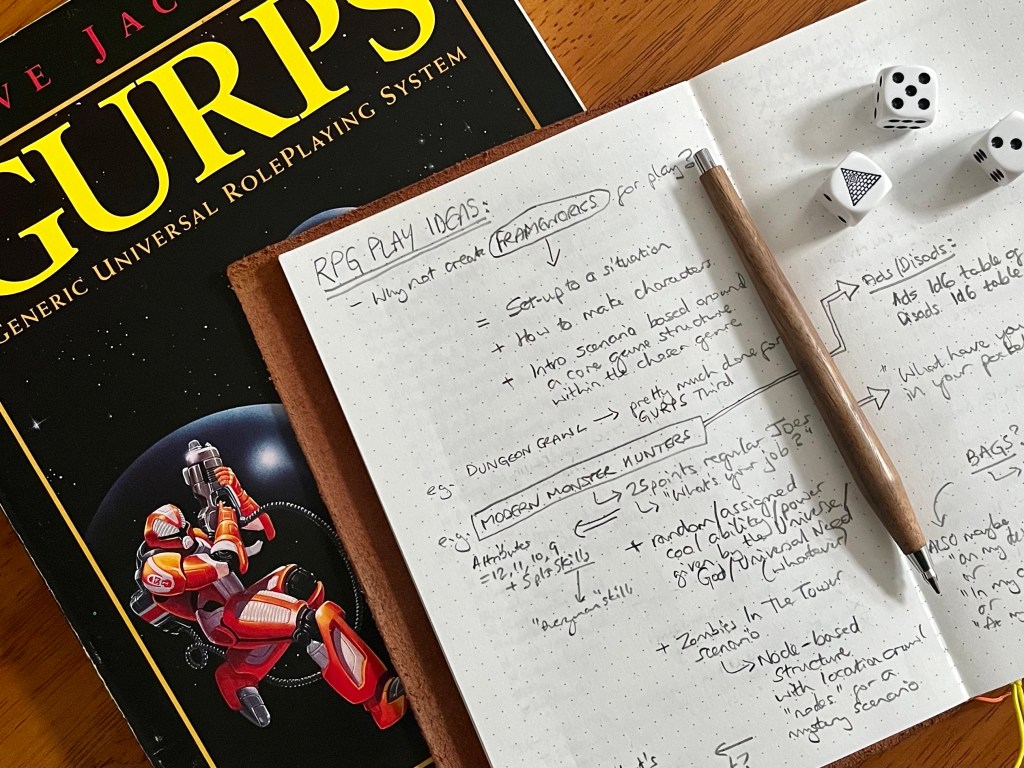 VE JAC
GURPS
GENERIC UNIVERSAL ROLEPLAYING SYSTEM
RPG PLAY IDEAS:
- Why not create FRAMEWORKS for play?
= Set-up to a situation
+ How to make characters
+ Intro scenario based around
a core game structure
within the chosen genre
eg. DUNGEON CRAWL → pretty much done for
GURPS Third
e.g. MODERN MONSTER HUNTERS
↳ 25 points regular JOES
↳ "What's your job?"
Attributes
= 12, 11, 10, 9
+ 5 pts Skills
"everyman" skills
+ random/assigned
cool ability/power
given by the Universe/
God/Universal Need/
(whatever)
+ Zombies In The Tower
scenario
↳ Node-based
structure
with location crawl
"nodes" for a
mystery scenario
Ads/Disads:
Ads 1d6 table of
Disads. 1d6 table
"What have you
in your pocket
BAGS?
ALSO maybe
"On my de
or
"In my c
or
"At m